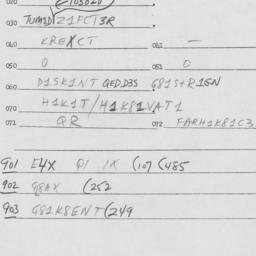 020 E103020
030 TUM1D/Z1FCT3R
040 KREXCT 041 —
050 0 051 0
060 D1SK1NT QEDD3S G81S+R1GN
070 H1K1T/H1K81VAT1
071 QR 072 FARH1K81C3
901 E4X 01 1X (107 (485
902 G8AX (252
903 G81K8ENT (249